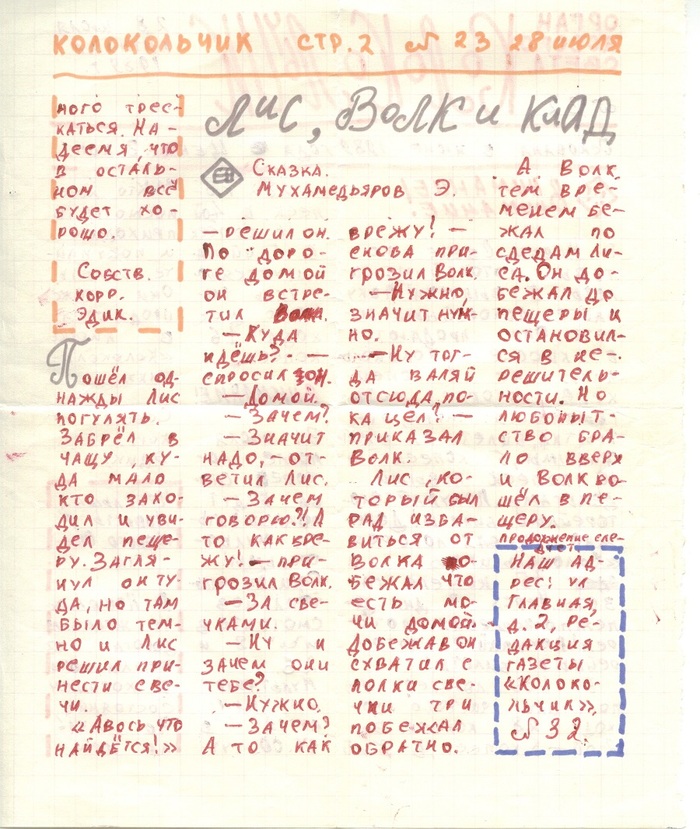 КОЛОКОЛЬЧИК СТР. 2 № 23 28 ИЮЛЯ
много трес-
каться. На-
деемя, что
в осталь-
ном всё
будет хо-
рошо.
Собств.
корр.
Эдик.
Лис, Волк и клад
Сказка.
Мухамедьяров Э.
Пошёл од-
нажды Лис
погулять.
Забрёл в
чащу, ку-
да мало
кто захо-
дил и уви-
дел пеще-
ру. Загля-
нул он ту-
да, но там
было тем-
но и Лис
решил при-
нести све-
чи.
«Авось что
найдётся!»
— решил он.
По доро-
ге домой
он встре-
тил Волк.
— Куда
идёшь? —
спросил он.
— Домой.
— Зачем?
— Значит
надо, — от-
ветил Лис.
— Зачем
говорю?! А
то как вре-
жу! — при-
грозил Волк.
— За све-
чками.
— Ну и
зачем они
тебе?
— Нужно.
— Зачем?
А то как
врежу! —
снова при-
грозил Волк.
— Нужно,
значит нуж-
но.
— Ну тог-
да валяй
отсюда, по-
ка цел? —
приказал
Волк.
Лис, ко-
торый был
рад изба-
виться от
Волка по-
бежал что
есть мо-
чи домой.
Добежав он
схватил с
полки све-
чки три
побежал
обратно.
А Волк
тем вре-
менем бе-
жал по
следам Ли-
са. Он до-
бежал до
пещеры и
остановил-
ся в не-
решитель-
ности. Но
любопыт-
ство бра-
ло вверх
и Волк во-
шёл в пе-
щеру.
продолжение сле-
дует
Наш ад-
рес: ул
Главная,
д. 2, ре-
дакция
газеты
«Колоко-
льчик»,
№ 32.